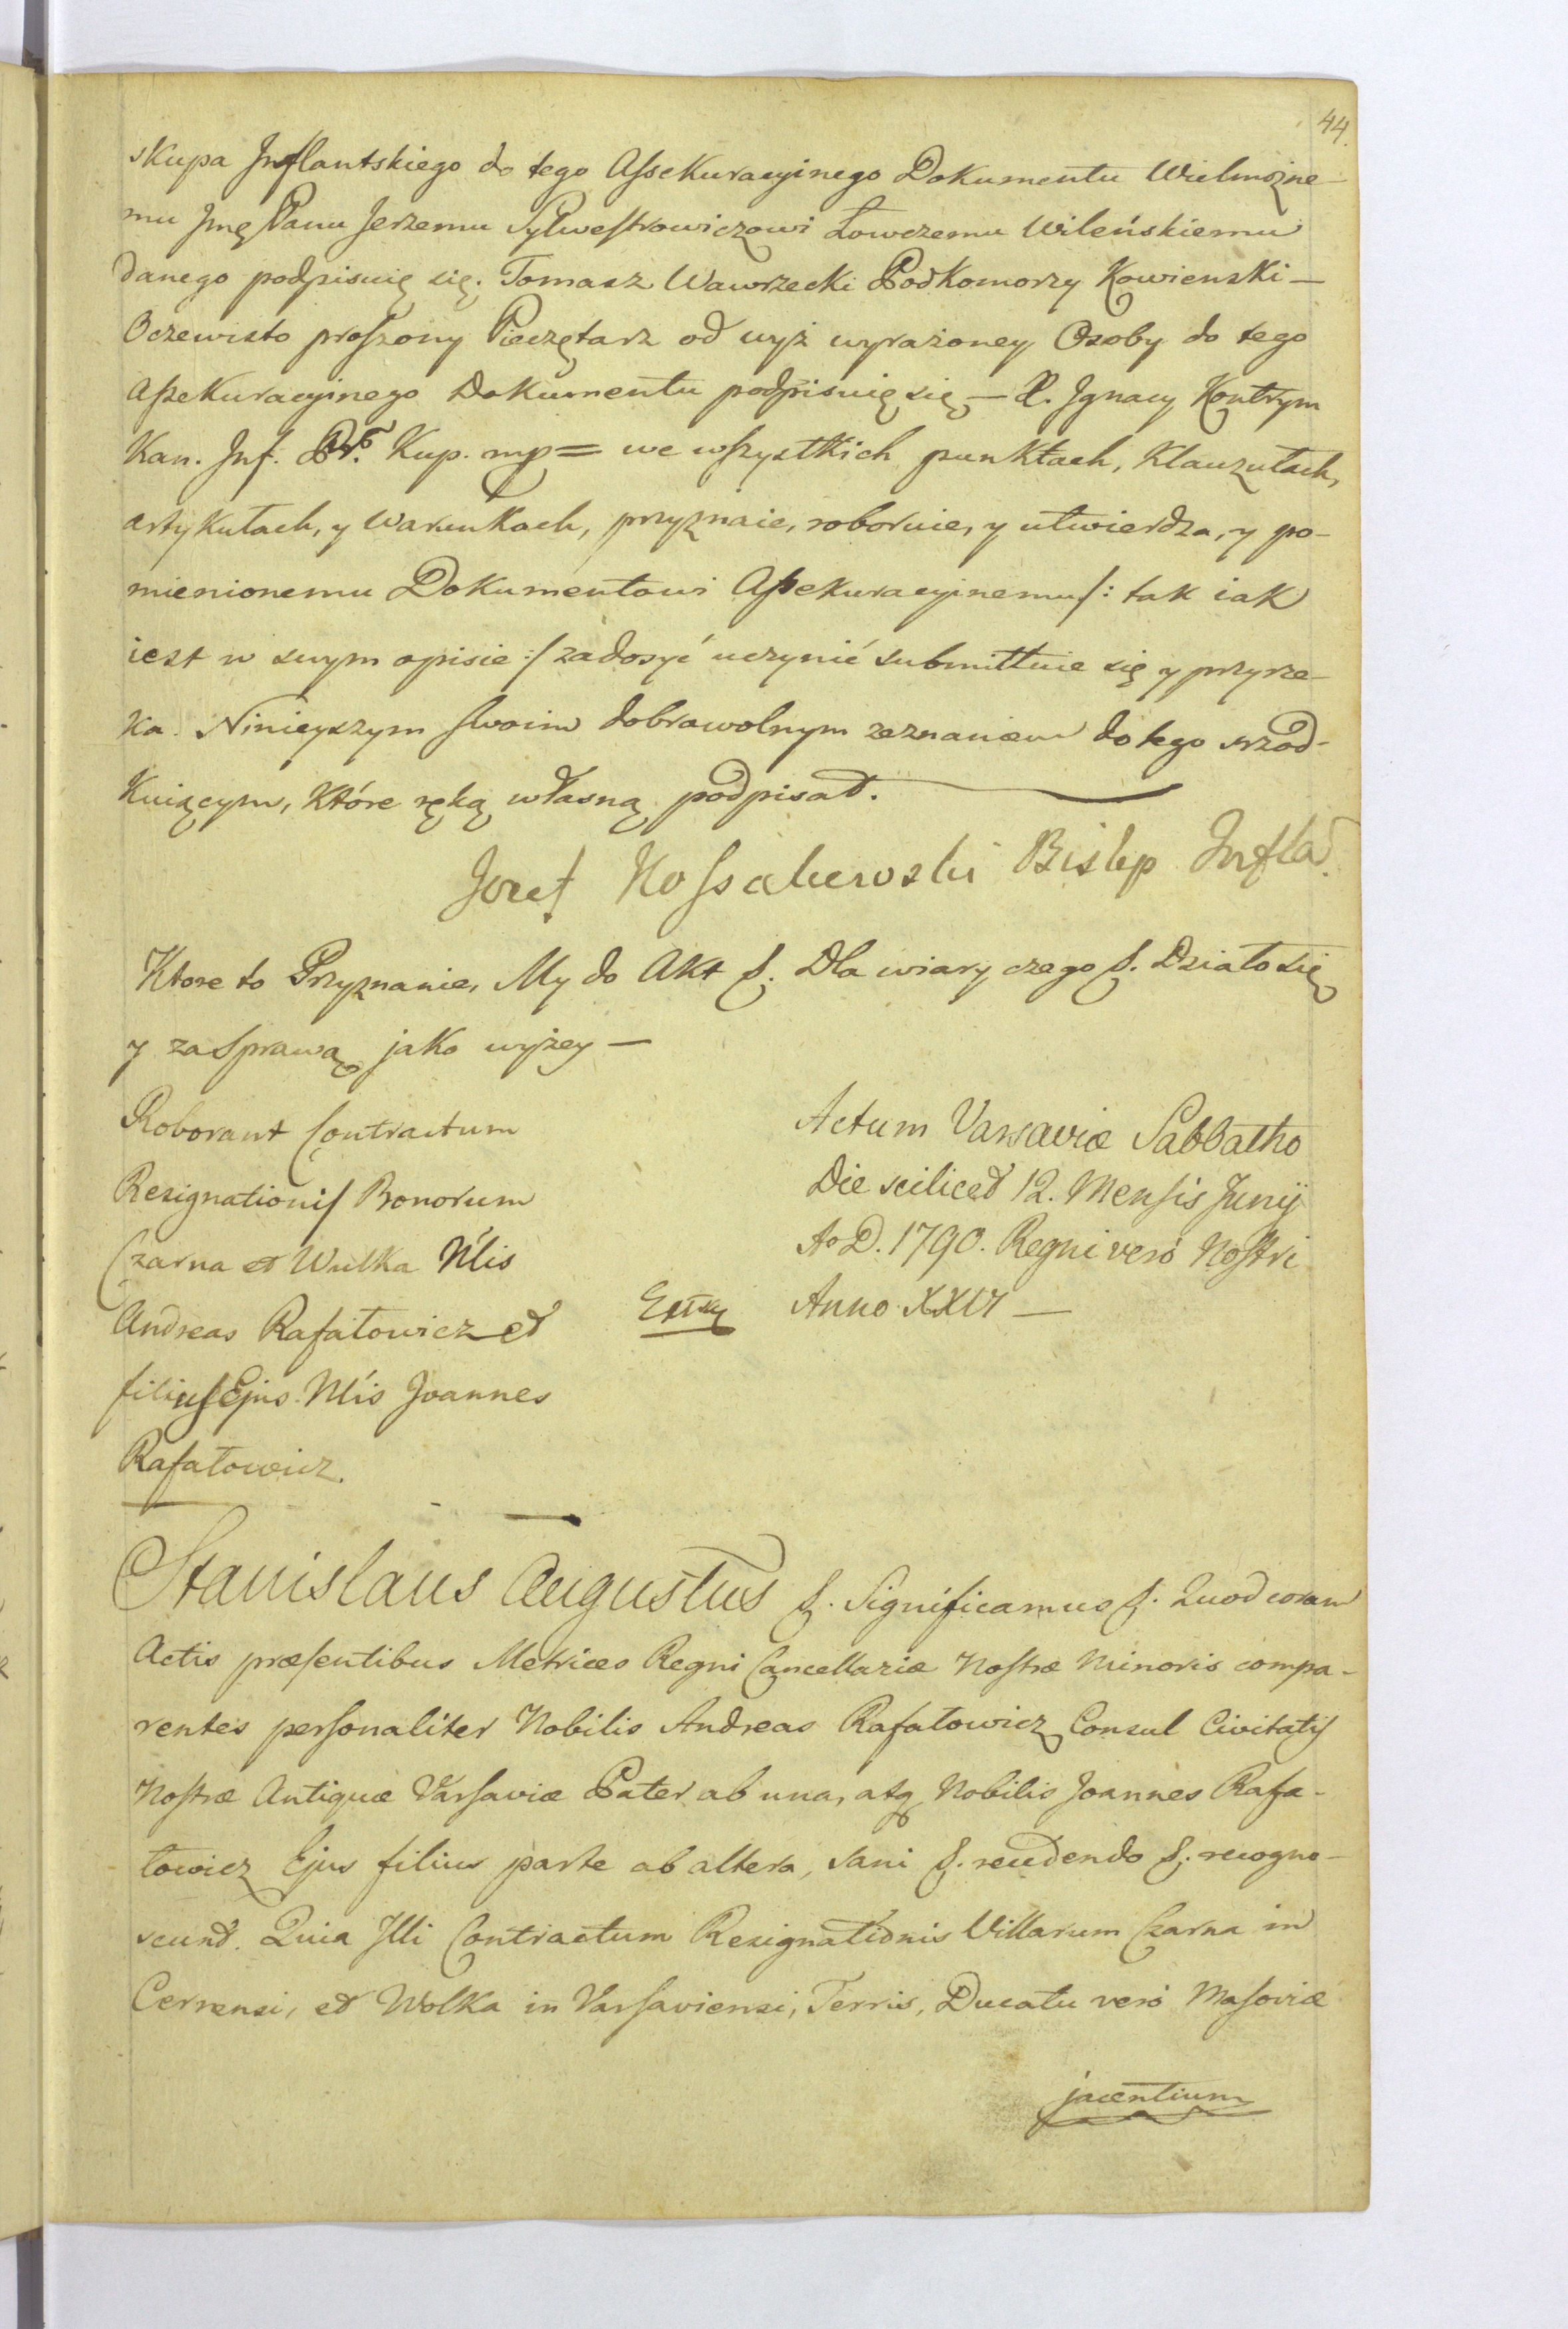 44.
skupa Jnflantskiego do tego Assekuracyinego Dokumentu Wielmożne-
mu Jmę Panu Jerzemu Sylwestrowiczowi Łowczemu Wileńskiemu
danego podpisuię się. Tomasz Wawrzecki Podkomorzy Kowienski —
Oczewisto proszony Pieczętarz od wyż wyrażoney Osoby do tego
Assekuracyinego Dokumentu podpisuię się — X. Jgnacy Kontrym
Kan. Jnf. Kup. mp = we wszystkich punktach, Klauzułach,
artykułach, y Warunkach, przyznaie, roboruie, y utwierdza, y po-
mienionemu Dokumentowi Assekuracyinemu /: tak iak
iest w swym opisie :/ zadosyć uczynić submittuie się y przyrze-
ka. Ninieyszym swoim dobrawolnym zeznaniem do tego wrzod-
Kuiącym, Które ręką własną podpisał.
Jozef Kossakowski Biskp Jnfla.
Ktore to Przyznanie, My do Akt &. Dla wiary czego &. Działo się
y za Sprawą jako wyżey —
Roborant Contractum
Resignationis Bonorum
Czarna et Wulka Nlis
Andreas Rafałowicz et
filius Ejus Nlis Joannes
Rafałowicz.
Actum Varsaviæ Sabbatho
Die scilicet 12. Mensis Junij
Ao D. 1790. Regni verò Nostri
Anno XXVI —
Stanislaus Augustus &. Significamus &. Quod coram
Actis præsentibus Metrices Regni Cancellariæ Nostræ Minoris compa-
rentes personaliter Nobilis Andreas Rafałowicz Consul Civitatis
Nostræ Antiquæ Varsaviæ Pater ab una, atq Nobilis Joannes Rafa-
łowicz Ejus filius parte ab altera, sani &. reudendo &. recogno-
scunt. Quia Jlli Contractum Resignationis Villarum Czarna in
Cernensi, et Wolka in Varsaviensi, Terris, Ducatu verò Masoviæ
jacentium